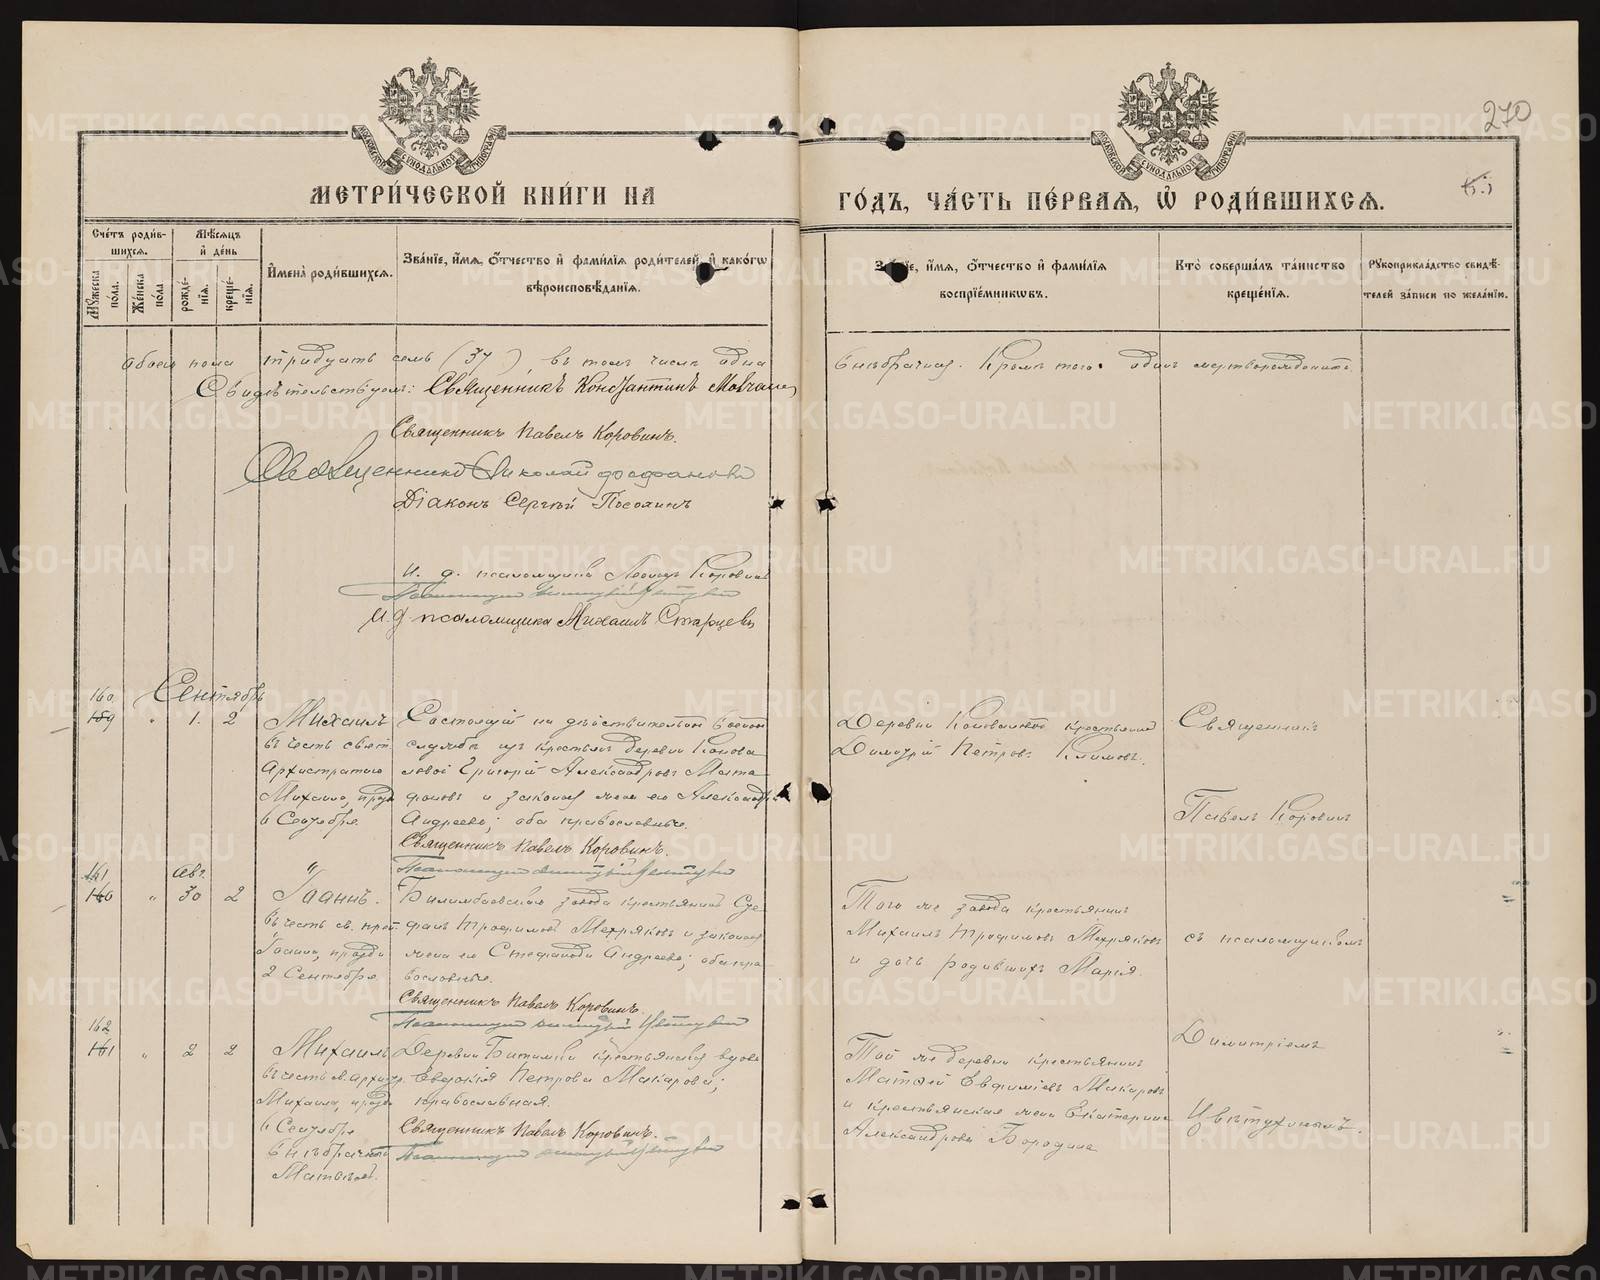 270
МЕТРИ́ЧЕСКОЙ КНИ́ГИ НА
ГО́ДЪ, ЧА́СТЬ ПЕ́РВАѦ, Ѡ҆ РОДИ́ВШИХСѦ.
Сче́тъ роди́в-
шихсѧ.
Мꙋжеска по́ла.
Же́нска по́ла
Мѣ́сѧцъ и҆ де́нь
рожде́-
нїѧ.
креще́-
нїѧ.
И҆мена̀ роди́вшихсѧ.
Зва́нїе, и҆́мѧ, о҆́тчество и҆ фамі́лїѧ роди́телей, и҆ како́гѡ
вѣроисповѣ́данїѧ.
Зва́нїе, и҆́мѧ, о҆́тчество и҆ фамі́лїѧ
воспрїе́мникѡвъ.
Кто̀ соверша́лъ та́инство
креще́нїѧ.
Рꙋкоприкла́дство свидѣ́-
телей за́писи по жела́нїю.
обоего пола тридцать семь (37) въ томъ числѣ одна
внѣбрачная. Кромѣ того одинъ мертворожденный.
Свидѣтельствуемъ: Священникъ Константинъ
Священникъ Павелъ Коровинъ.
Священникъ Николай
Діаконъ Сергѣй
И. д. псаломщика Леонидъ Коровинъ
И. д. псаломщика Михаилъ Старцевъ
Сентябрь
160
159 " 1. 2
Михаилъ
въ честь свят.
Архистратига
Михаила, празд.
6 Сентября.
Состоящій на дѣйствительной военной
службѣ изъ крестьянъ деревни Конова
ловой Григорій Александровъ
и законная жена его Александра
Андреева; оба православные.
Священникъ Павелъ Коровинъ.
Деревни Коноваловой крестьянинъ
Димитрій Петровъ Климовъ.
Священникъ
Павелъ Коровинъ
161 Авг. "
160 " 30 2
Іоаннъ.
въ честь св. прп.
Іоанна, праздн.
2 Сентября
Билимбаевскаго завода крестьянинъ Сте-
фанъ Трофимовъ Мехряковъ и законная
жена его Стефанида Андреева; оба пра
вославные.
Священникъ Павелъ Коровинъ.
Того же завода крестьянинъ
Михаилъ Трофимовъ Мехряковъ
и дочь Марія.
съ псаломщикомъ
162
161 " 2 2
Михаилъ
въ честь св. Архистр.
Михаила, празд.
6 Сентября
Внѣбрачный
Деревни Битимки крестьянская вдова
Евдокія Петрова Макарова;
православная.
Священникъ Павелъ Коровинъ.
Той же деревни крестьянинъ
Матвѣй Евфиміевъ Макаровъ
и крестьянская жена Екатерина
Александрова Бородина
Димитріемъ
Цвѣтухинымъ.
METRIKI.GASO-URAL.RU